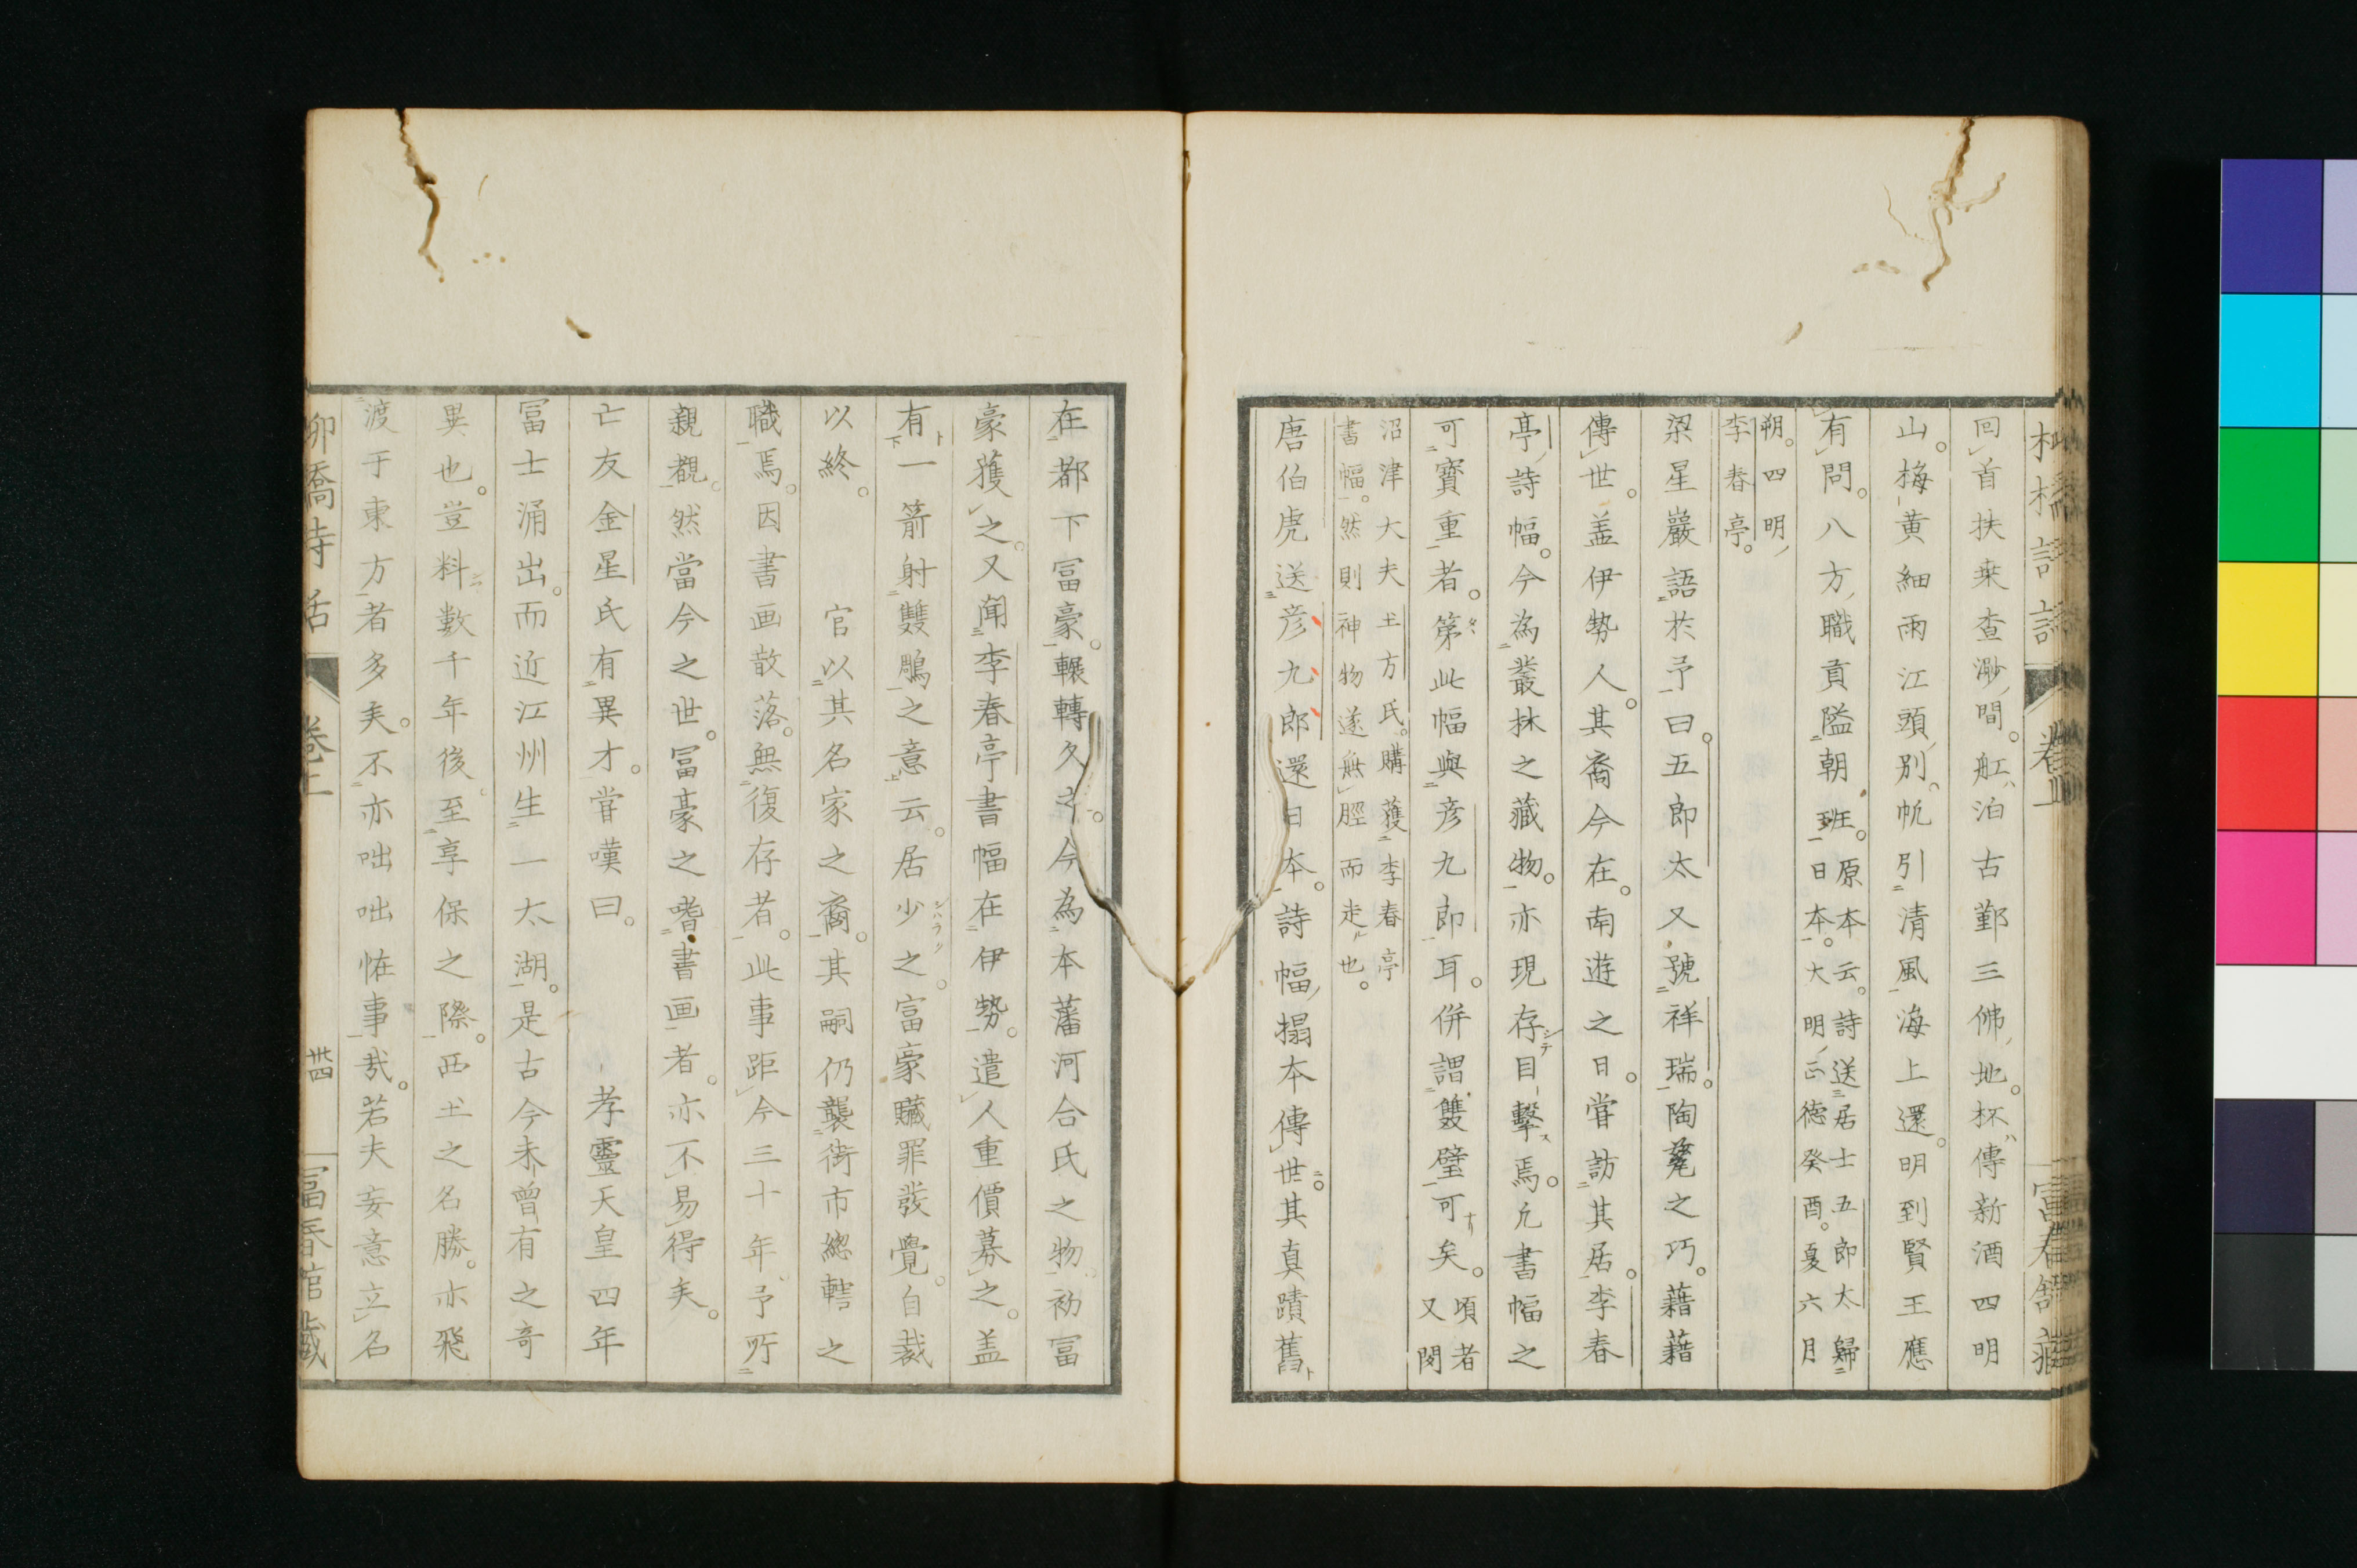 回首扶乗査渺間。舡泊古鄞三佛地。杯傳新酒四明
山。梅黄細雨江頭別。帆引清風海上還。明到賢王應
有問。八方職貢隘朝班。原本云。詩送居士五郎太歸
日本。大明正徳癸酉。夏六月
朔。四明
李春亭。
梁星巖語於予曰。五郎太又號祥瑞。陶甕之巧。藉藉
傳世。盖伊勢人。其裔今在。南遊之日。甞訪其居。李春
亭詩幅。今為叢林之藏物。亦現存目擊焉。允書幅之
可寶重者。第此幅與彦九郎耳。併謂雙璧可矣。又頃者
閲
沼津大夫土方氏。購獲李春亭
書幅。然則神物遂無脛而走也。
唐伯虎送彦九郎還日本。詩幅搨本傳世。其真蹟舊
柳橋詩話
卷上
富春館藏
在都下冨豪。輾轉久之。今為本藩河合氏之物。初冨
豪獲之。又聞李春亭書幅在伊勢。遣人重價募之。盖
有一箭射雙鵰之意云。居少之。富豪贓罪發覺。自裁
以終。 官以其名家之裔。其嗣仍襲街市總轄之
職焉。因書画散落。無復存者。此事距今三十年。予所
親覩。然當今之世。冨豪之嗜書画者。亦不易得矣。
亡友金星氏有異才。甞嘆曰。 孝靈天皇四年
冨士涌出。而近江州生一太湖。是古今未曾有之奇
異也。豈料數千年後。至享保之際。西土之名勝。亦飛
渡于東方者多矣。不亦咄咄恠事哉。若夫妄意立名
柳橋詩話
卷上
卅四
冨春館藏